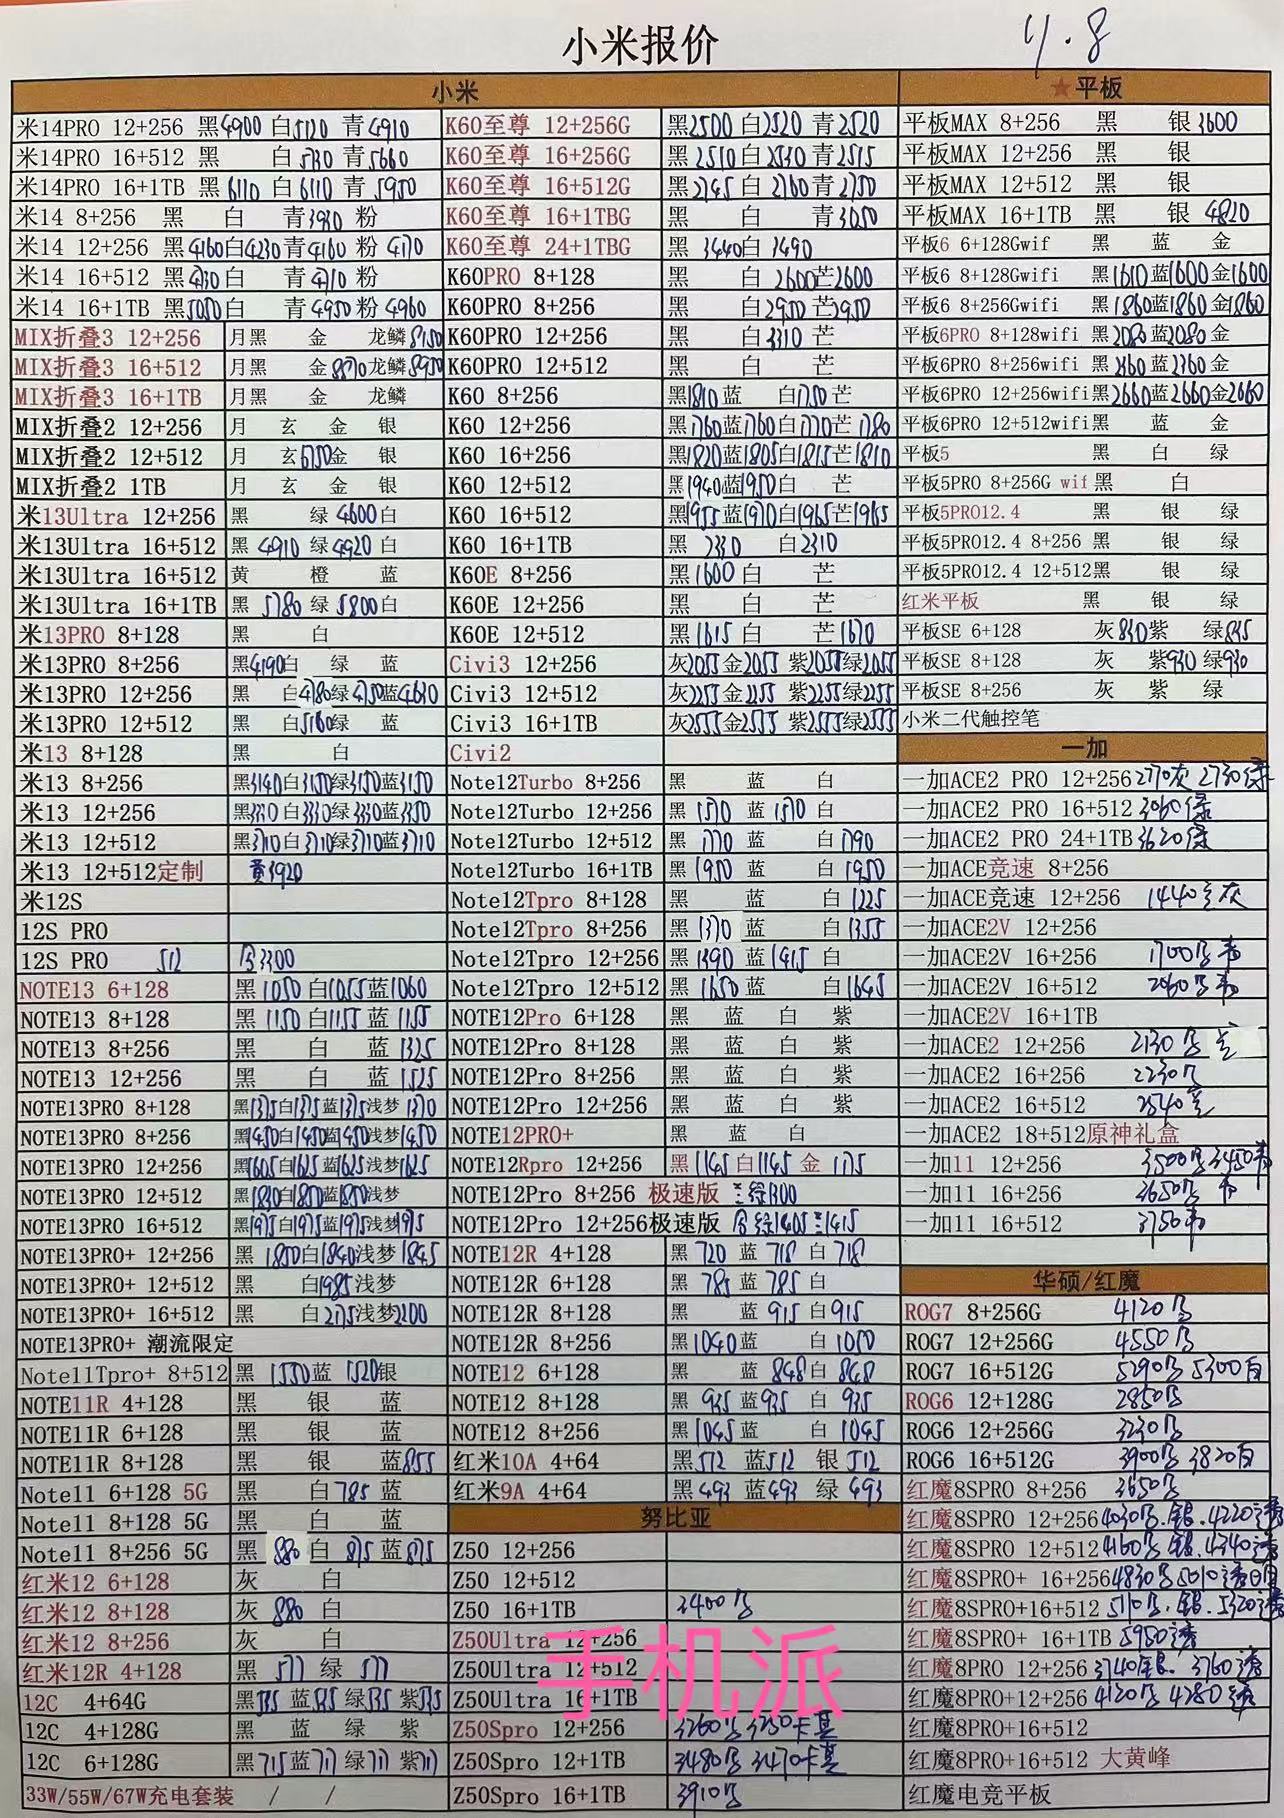 小米报价 11.8
小米
米14PRO 12+256 黑4900 白5120 青4910
米14PRO 16+512 黑 白5730 青5660
米14PRO 16+1TB 黑6110 白6110 青5950
米14 8+256 黑 白 青3930 粉
米14 12+256 黑4160白4230青4160 粉 4170
米14 16+512 黑 白 青 粉
米14 16+1TB 黑5050白 青4950粉4960
MIX折叠3 12+256 月黑 金 龙鳞8150
MIX折叠3 16+512 月黑 金8870龙鳞8950
MIX折叠3 16+1TB 月黑 金 龙鳞
MIX折叠2 12+256 月 玄 金 银
MIX折叠2 12+512 月 玄 金 银
MIX折叠2 1TB 月 玄 金 银
米13Ultra 12+256 黑 绿4600白
米13Ultra 16+512 黑 4910 绿4920 白
米13Ultra 16+512 黄 橙 蓝
米13Ultra 16+1TB 黑 5780 绿 5800白
米13PRO 8+128 黑 白
米13PRO 8+256 黑4190白 绿 蓝
米13PRO 12+256 黑 白4780绿4750蓝4630
米13PRO 12+512 黑 白5160绿 蓝
米13 8+128 黑 白
米13 8+256 黑3140白3150绿3150蓝3150
米13 12+256 黑3330白3330绿3330蓝3350
米13 12+512 黑3710白3710绿3710蓝3710
米13 12+512定制 黄3920
米12S
12S PRO
12S PRO 512 3300
NOTE13 6+128 黑1050白1055蓝1060
NOTE13 8+128 黑 1150 白1155 蓝 1155
NOTE13 8+256 黑 白 蓝1325
NOTE13 12+256 黑 白 蓝 1525
NOTE13PRO 8+128 黑1375白1375蓝1375浅梦 1370
NOTE13PRO 8+256 黑1450白1450蓝1450浅梦1450
NOTE13PRO 12+256 黑1605白1625蓝1625浅梦1625
NOTE13PRO 12+512 黑1830白1850蓝1850浅梦
NOTE13PRO 16+512 黑1975白1975蓝1975浅梦1975
NOTE13PRO+ 12+256 黑 1850白1840浅梦 1845
NOTE13PRO+ 12+512 黑 白1985浅梦
NOTE13PRO+ 16+512 黑 白2175浅梦2200
NOTE13PRO+ 潮流限定
Note11Tpro+ 8+512 黑 1550蓝 1520银
NOTE11R 4+128 黑 银 蓝
NOTE11R 6+128 黑 银 蓝
NOTE11R 8+128 黑 银 蓝855
Note11 6+128 5G 黑 白785蓝
Note11 8+128 5G 黑 白 蓝
Note11 8+256 5G 黑 880 白 875 蓝875
红米12 6+128 灰 白
红米12 8+128 灰 880 白
红米12 8+256 灰 白
红米12R 4+128 黑 577 绿 577
12C 4+64G 黑535 蓝535 绿535 紫535
12C 4+128G 黑 蓝 绿 紫
12C 6+128G 黑715蓝711绿711紫711
33W/55W/67W充电套装 / /
K60至尊 12+256G 黑2500 白2520 青2520
K60至尊 16+256G 黑2510白2530青2515
K60至尊 16+512G 黑2745 白2760青2750
K60至尊 16+1TBG 黑 白 青3050
K60至尊 24+1TBG 黑 3440白 3490
K60PRO 8+128 黑 白2600芒2600
K60PRO 8+256 黑 白2950芒2950
K60PRO 12+256 黑 白3310 芒
K60PRO 12+512 黑 白 芒
K60 8+256 黑1810蓝 白1750芒
K60 12+256 黑1760蓝1760白1770芒1780
K60 16+256 黑1820蓝1805白1815芒1810
K60 12+512 黑1940蓝1950白 芒
K60 16+512 黑1955蓝1970白1965芒1965
K60 16+1TB 黑 2330 白2310
K60E 8+256 黑1600白 芒
K60E 12+256 黑 白 芒
K60E 12+512 黑1615白 芒1670
Civi3 12+256 灰2055金2055 紫2055绿2055
Civi3 12+512 灰2255金2255 紫2255绿2255
Civi3 16+1TB 灰2555金2555 紫2555绿2555
Civi2
Note12Turbo 8+256 黑 蓝 白
Note12Turbo 12+256 黑 1570 蓝 1570 白
Note12Turbo 12+512 黑 1770 蓝 白1790
Note12Turbo 16+1TB 黑 1950 蓝 白 1950
Note12Tpro 8+128 黑 蓝 白 1225
Note12Tpro 8+256 黑 1370 蓝 白1355
Note12Tpro 12+256 黑 1390 蓝1415 白
Note12Tpro 12+512 黑 1650 蓝 白1645
NOTE12Pro 6+128 黑 蓝 白 紫
NOTE12Pro 8+128 黑 蓝 白 紫
NOTE12Pro 8+256 黑 蓝 白 紫
NOTE12Pro 12+256 黑 蓝 白 紫
NOTE12PRO+ 黑 蓝 白
NOTE12Rpro 12+256 黑1145白1145 金 1175
NOTE12Pro 8+256 极速版
NOTE12Pro 12+256极速版
NOTE12R 4+128 黑 720 蓝 718 白 718
NOTE12R 6+128 黑 785 蓝 785 白
NOTE12R 8+128 黑 蓝 915 白915
NOTE12R 8+256 黑1040蓝 白 1050
NOTE12 6+128 黑 蓝 848白 848
NOTE12 8+128 黑 935 蓝935 白 935
NOTE12 8+256 黑1045蓝 白 1045
红米10A 4+64 黑512 蓝512 银 512
红米9A 4+64 黑493 蓝493 绿 493
努比亚
Z50 12+256
Z50 12+512
Z50 16+1TB 3400
Z50Ultra 12+256
Z50Ultra 12+512
Z50Ultra 16+1TB
Z50Spro 12+256
Z50Spro 12+1TB
Z50Spro 16+1TB 3910
手机派
★平板
平板MAX 8+256 黑 银3600
平板MAX 12+256 黑 银
平板MAX 12+512 黑 银
平板MAX 16+1TB 黑 银4820
平板6 6+128Gwif 黑 蓝 金
平板6 8+128Gwifi 黑1610蓝1600金1600
平板6 8+256Gwifi 黑1860蓝1860金1860
平板6PRO 8+128wifi 黑2080蓝2080金
平板6PRO 8+256wifi 黑2360蓝2360金
平板6PRO 12+256wifi黑2660蓝2660金2660
平板6PRO 12+512wifi黑 蓝 金
平板5 黑 白 绿
平板5PRO 8+256G wif黑 白
平板5PRO12.4 黑 银 绿
平板5PRO12.4 8+256 黑 银 绿
平板5PRO12.4 12+512黑 银 绿
红米平板 黑 银 绿
平板SE 6+128 灰830紫 绿835
平板SE 8+128 灰 紫930绿930
平板SE 8+256 灰 紫 绿
小米二代触控笔
一加
一加ACE2 PRO 12+256 2770灰 2730绿
一加ACE2 PRO 16+512 3060绿
一加ACE2 PRO 24+1TB 3620绿
一加ACE竞速 8+256
一加ACE竞速 12+256 1440
一加ACE2V 12+256
一加ACE2V 16+256 1700
一加ACE2V 16+512 2060
一加ACE2V 16+1TB
一加ACE2 12+256 2130
一加ACE2 16+256 2230
一加ACE2 16+512 2540
一加ACE2 18+512原神礼盒
一加11 12+256 3500 3450
一加11 16+256 3650
一加11 16+512 3750
华硕/红魔
ROG7 8+256G 4120
ROG7 12+256G 4550
ROG7 16+512G 5290 5300白
ROG6 12+128G 2850
ROG6 12+256G 3230
ROG6 16+512G 3900 3820白
红魔8SPRO 8+256 3650
红魔8SPRO 12+256 4030 银 4220透
红魔8SPRO 12+512 4160 银 4340透
红魔8SPRO+ 16+256 4830 5010透
红魔8SPRO+16+512 5110 银 5320透
红魔8SPRO+ 16+1TB 5950透
红魔8PRO 12+256 3740银 3760透
红魔8PRO+12+256 4120 4280透
红魔8PRO+16+512
红魔8PRO+16+512 大黄峰
红魔电竞平板